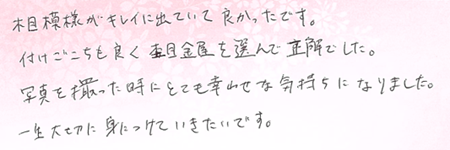 木目模様がキレイに出ていて良かったです。
付けごこちも良く杢目金屋を選んで正解でした。
写真を撮った時にとても幸わせな気持ちになりました。
一生大切に身につけていきたいです。